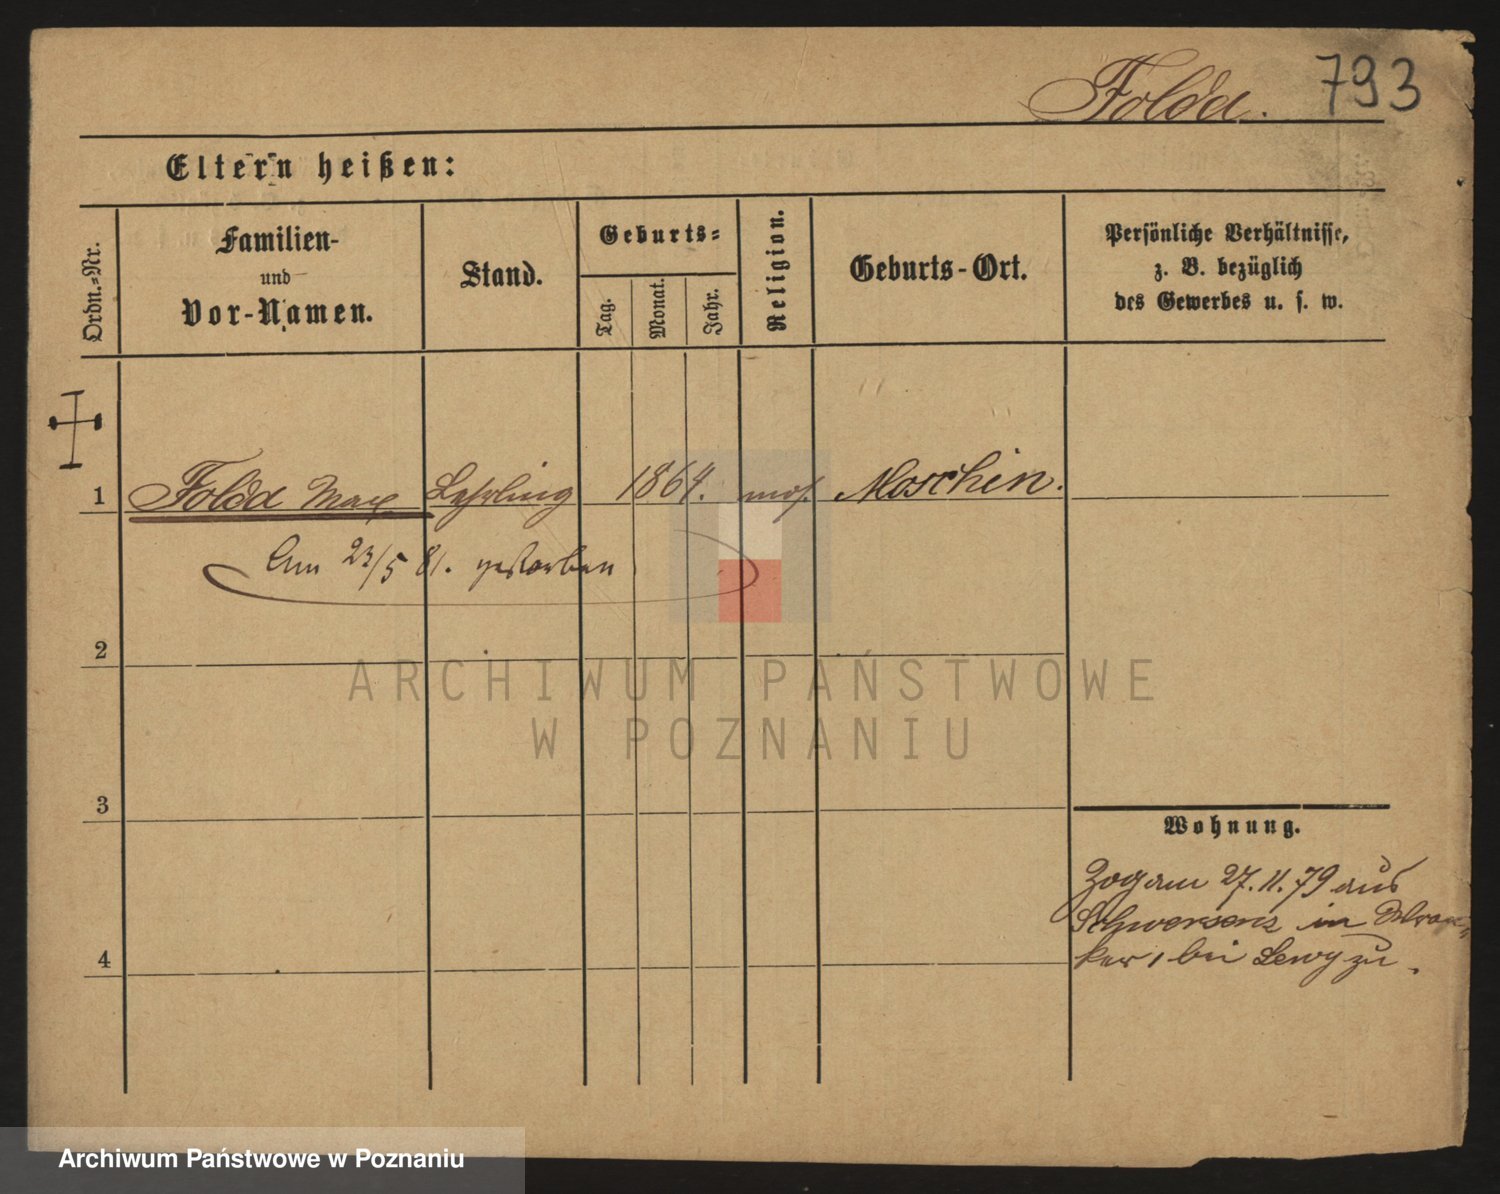 Foldd. 793
Eltern heißen:
Ordn.-Nr.
Familien-
und
Vor-Namen.
Stand.
Geburts-
Tag.
Monat.
Jahr.
Religion.
Geburts-Ort.
Persönliche Verhältnisse,
z. B. bezüglich
des Gewerbes u. s. w.
1 Foldd Max Lehrling 1864. mos. Moschin.
Am 23/5 81. gestorben
2
ARCHIWUM PAŃSTWOWE
W POZNANIU
3
Wohnung.
Zog am 27. 11. 79 aus
Schwersenz in
4
ker 1 bei Lewy zu.
Archiwum Państwowe w Poznaniu